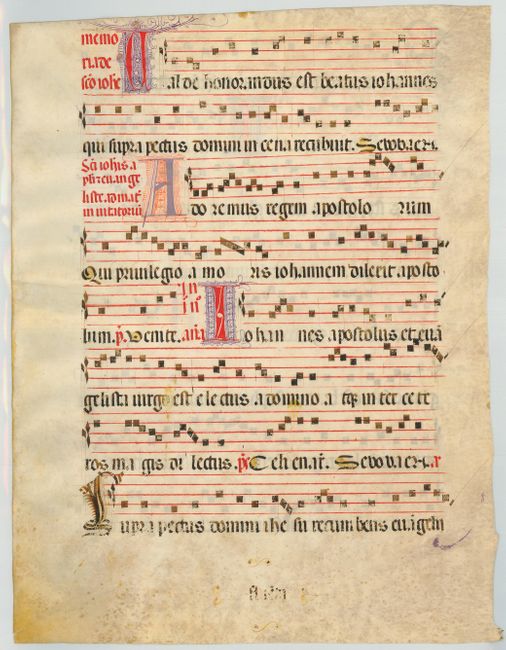 memo
ria de
sco iohe
Ualde honorandus est beatus iohannes
qui supra pectus domini in cena recubuit. Seuouaen.
Sci iohis a
pli et euange
liste. ad mat
in uitatoriu
Ado remus regem apostolo rum
Qui priuilegio a mo ris iohannem dilexit aposto
lum. ps. Venite. ana Iohan nes apostolus et euā
gelista uirgo est e lectus a domino a tq; in ter ce te
ros ma gis di lectus. ps Celi enat. Seuouaen.
Supra pectus domini ihe su recum bens euāgelii